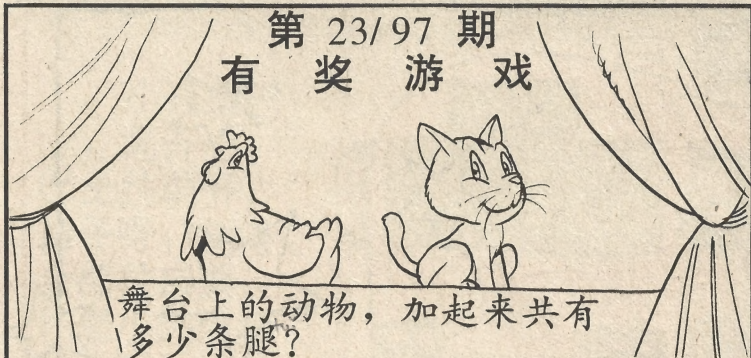 第 23/97 期
有 奖 游 戏
舞台上的动物，加起来共有
多少条腿？